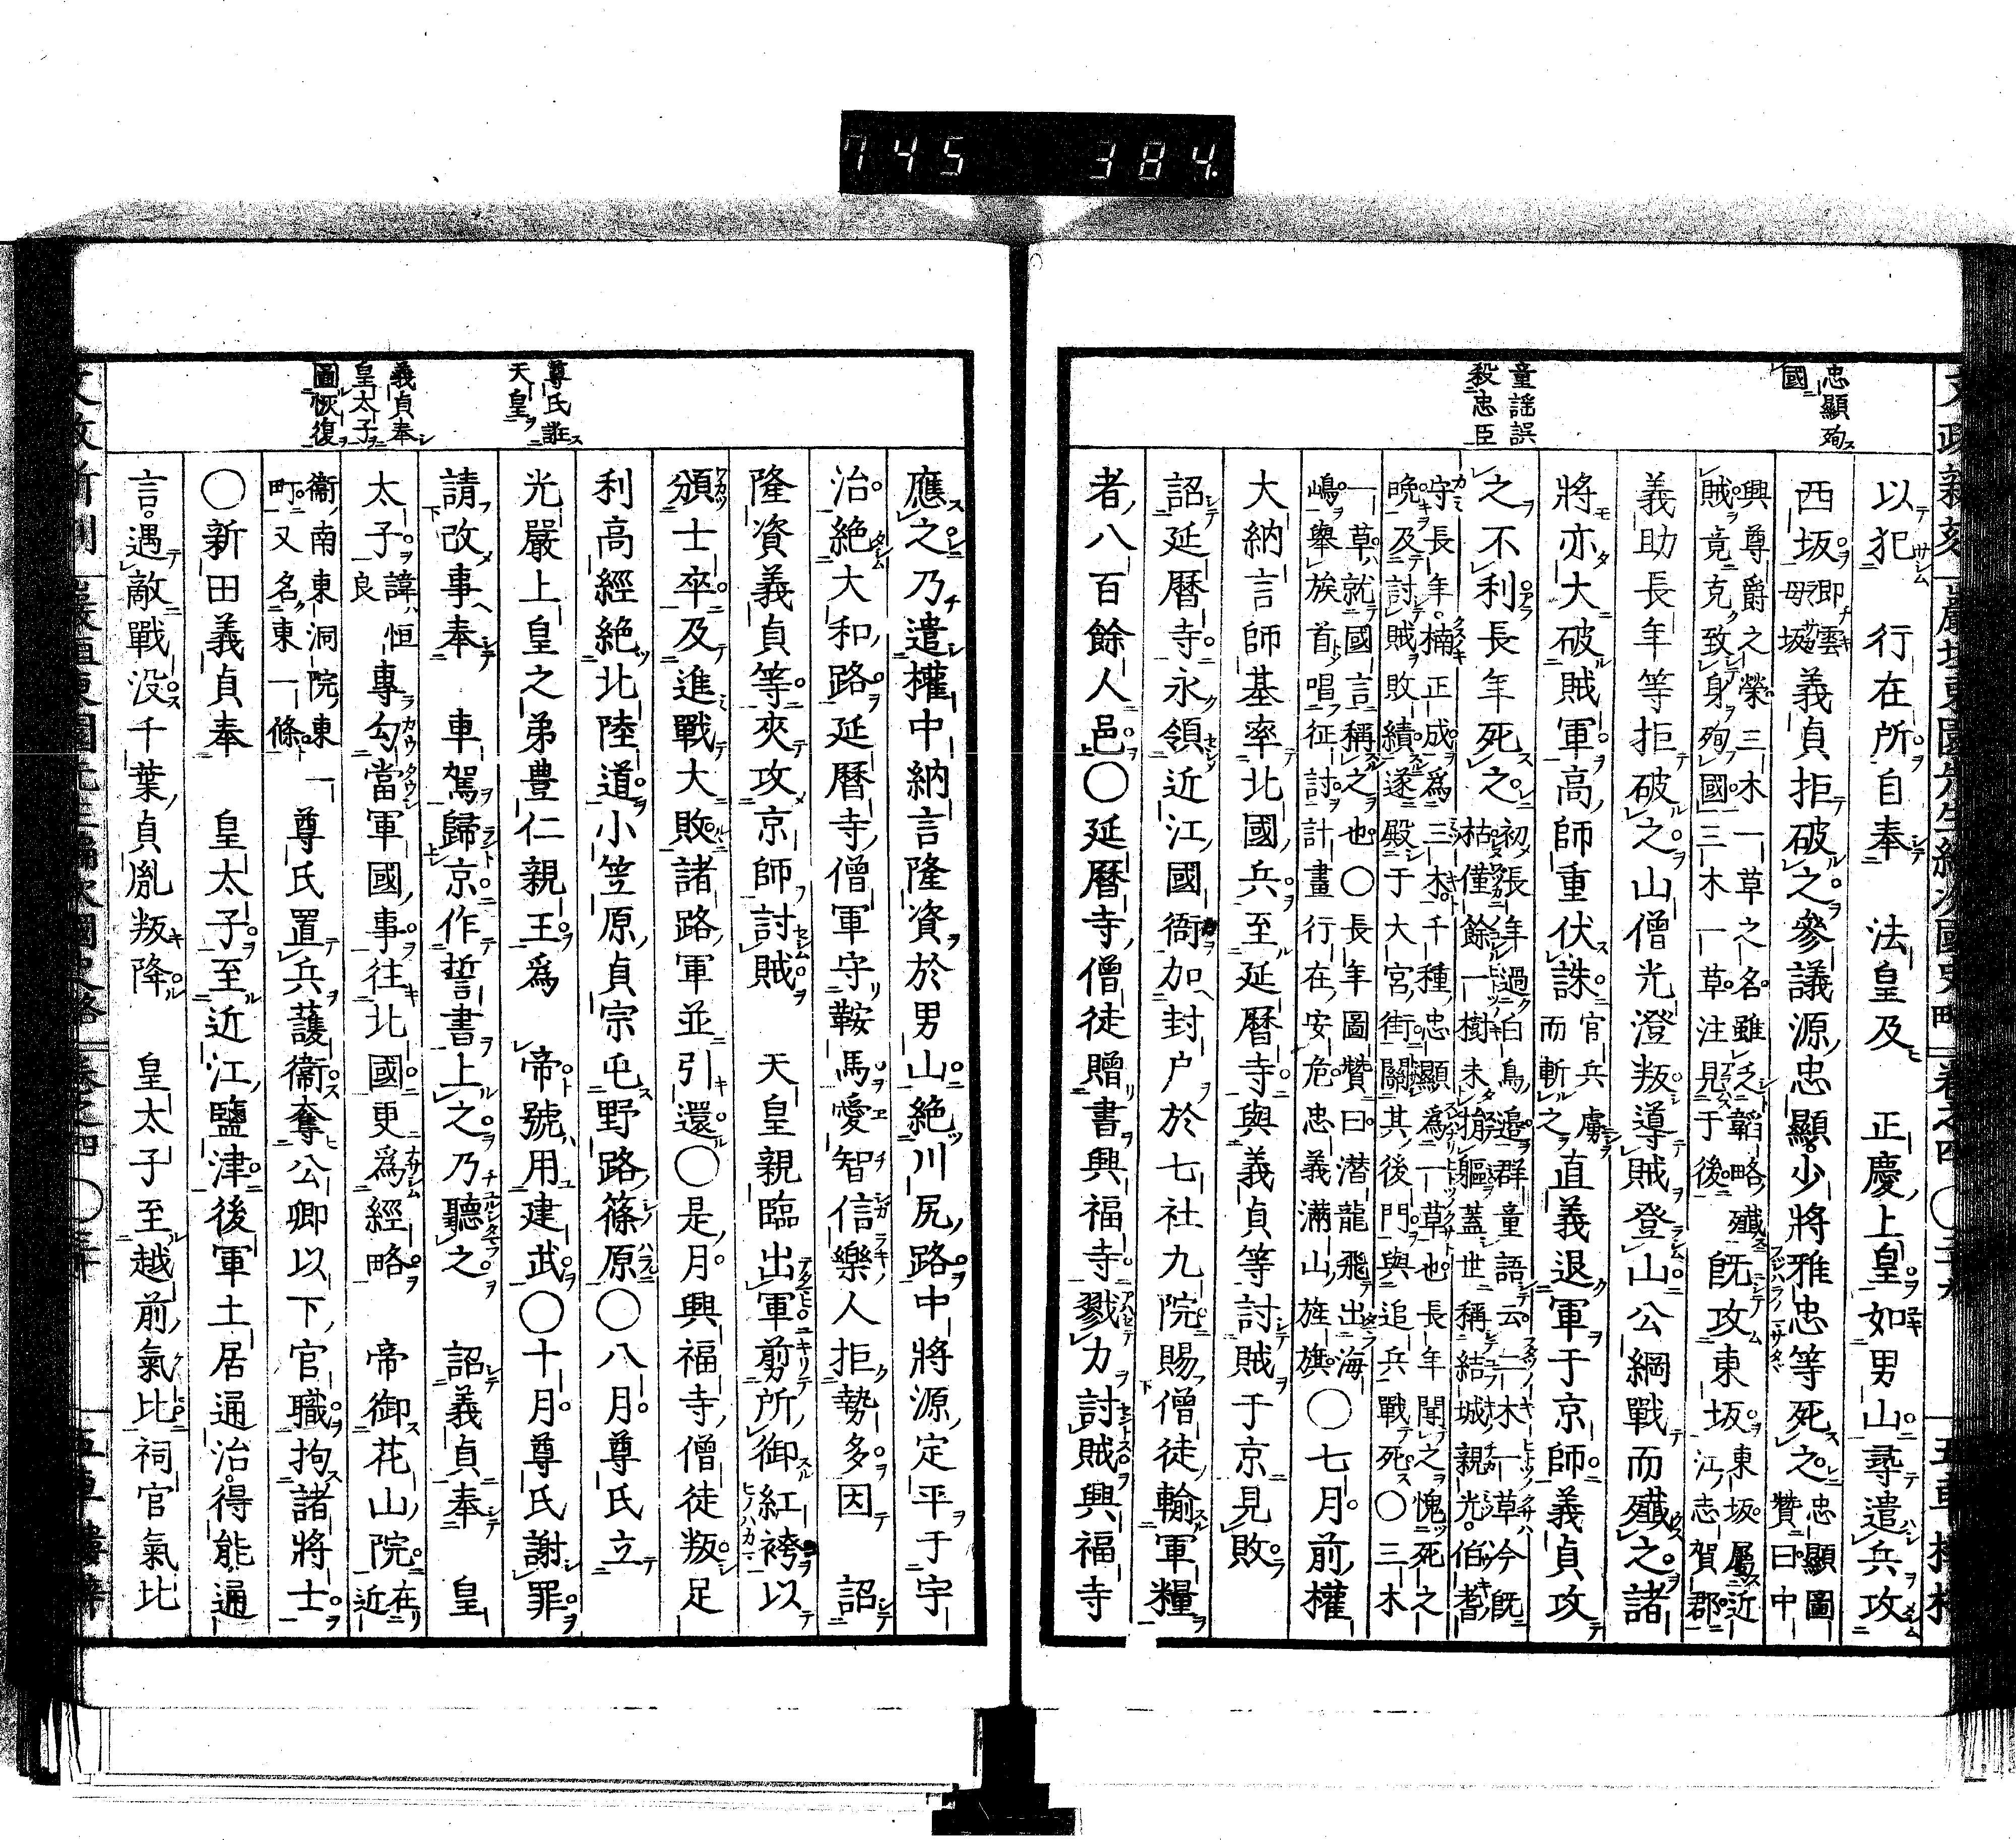 745 384.
忠顯殉
國
童謡誤
殺忠臣
以犯　行在所自奉　法皇及　正慶上皇如男山尋遣兵攻
西坂即雲母坂義貞拒破之參議源忠顯少將雅忠等死之忠顯圖贊曰中
興尊爵之榮三木一草之名雖乏韜略殲
賊竟克致身殉國三木一草注見于後既攻東坂東坂屬近江志賀郡
義助長年等拒破之山僧光澄叛導賊登山公綱戰而殲之諸
將亦大破賊軍高師重伏誅官兵虜而斬之直義退軍于京師義貞攻
之不利長年死之初長年過白鳥邊群童語云二木一草今既
枯僅餘一樹未捐軀蓋世稱結城親光伯耆
守長年楠正成爲三木千種忠顯爲一草也長年聞之愧死之
晩及討賊敗績遂殿于大宮街關其後門與追兵戰死〇三木
一草就國言稱之也〇長年圖贊曰潛龍飛出海
嶋舉族首唱征討計畫行在安危忠義滿山旌旗〇七月前權
大納言師基率北國兵至延暦寺與義貞等討賊于京見敗
詔延暦寺永領近江國衙加封户於七社九院賜僧徒輸軍糧
者八百餘人邑〇延暦寺僧徒贈書興福寺戮力討賊興福寺
尊氏誑
天皇
義貞奉
皇太子
圖恢復
應之乃遣權中納言隆資於男山絶川尻路中將源定平于宇
治絶大和路延暦寺僧軍守鞍馬愛智信樂人拒勢多因　詔
隆資義貞等夾攻京師討賊　天皇親臨出軍剪所御紅袴以
頒士卒及進戰大敗諸路軍並引還〇是月興福寺僧徒叛足
利高經絶北陸道小笠原貞宗屯野路篠原〇八月尊氏立
光嚴上皇之弟豊仁親王爲　帝號用建武〇十月尊氏謝罪
請改事奉　車駕歸京作誓書上之乃聽之　詔義貞奉　皇
太子諱恒良專勾當軍國事往北國更爲經略　帝御花山院在近
衞南東洞院東
町又名東一條　尊氏置兵護衞奪公卿以下官職拘諸將士
〇新田義貞奉　皇太子至近江鹽津後軍土居通治得能通
言遇敵戰没千葉貞胤叛降　皇太子至越前氣比祠官氣比